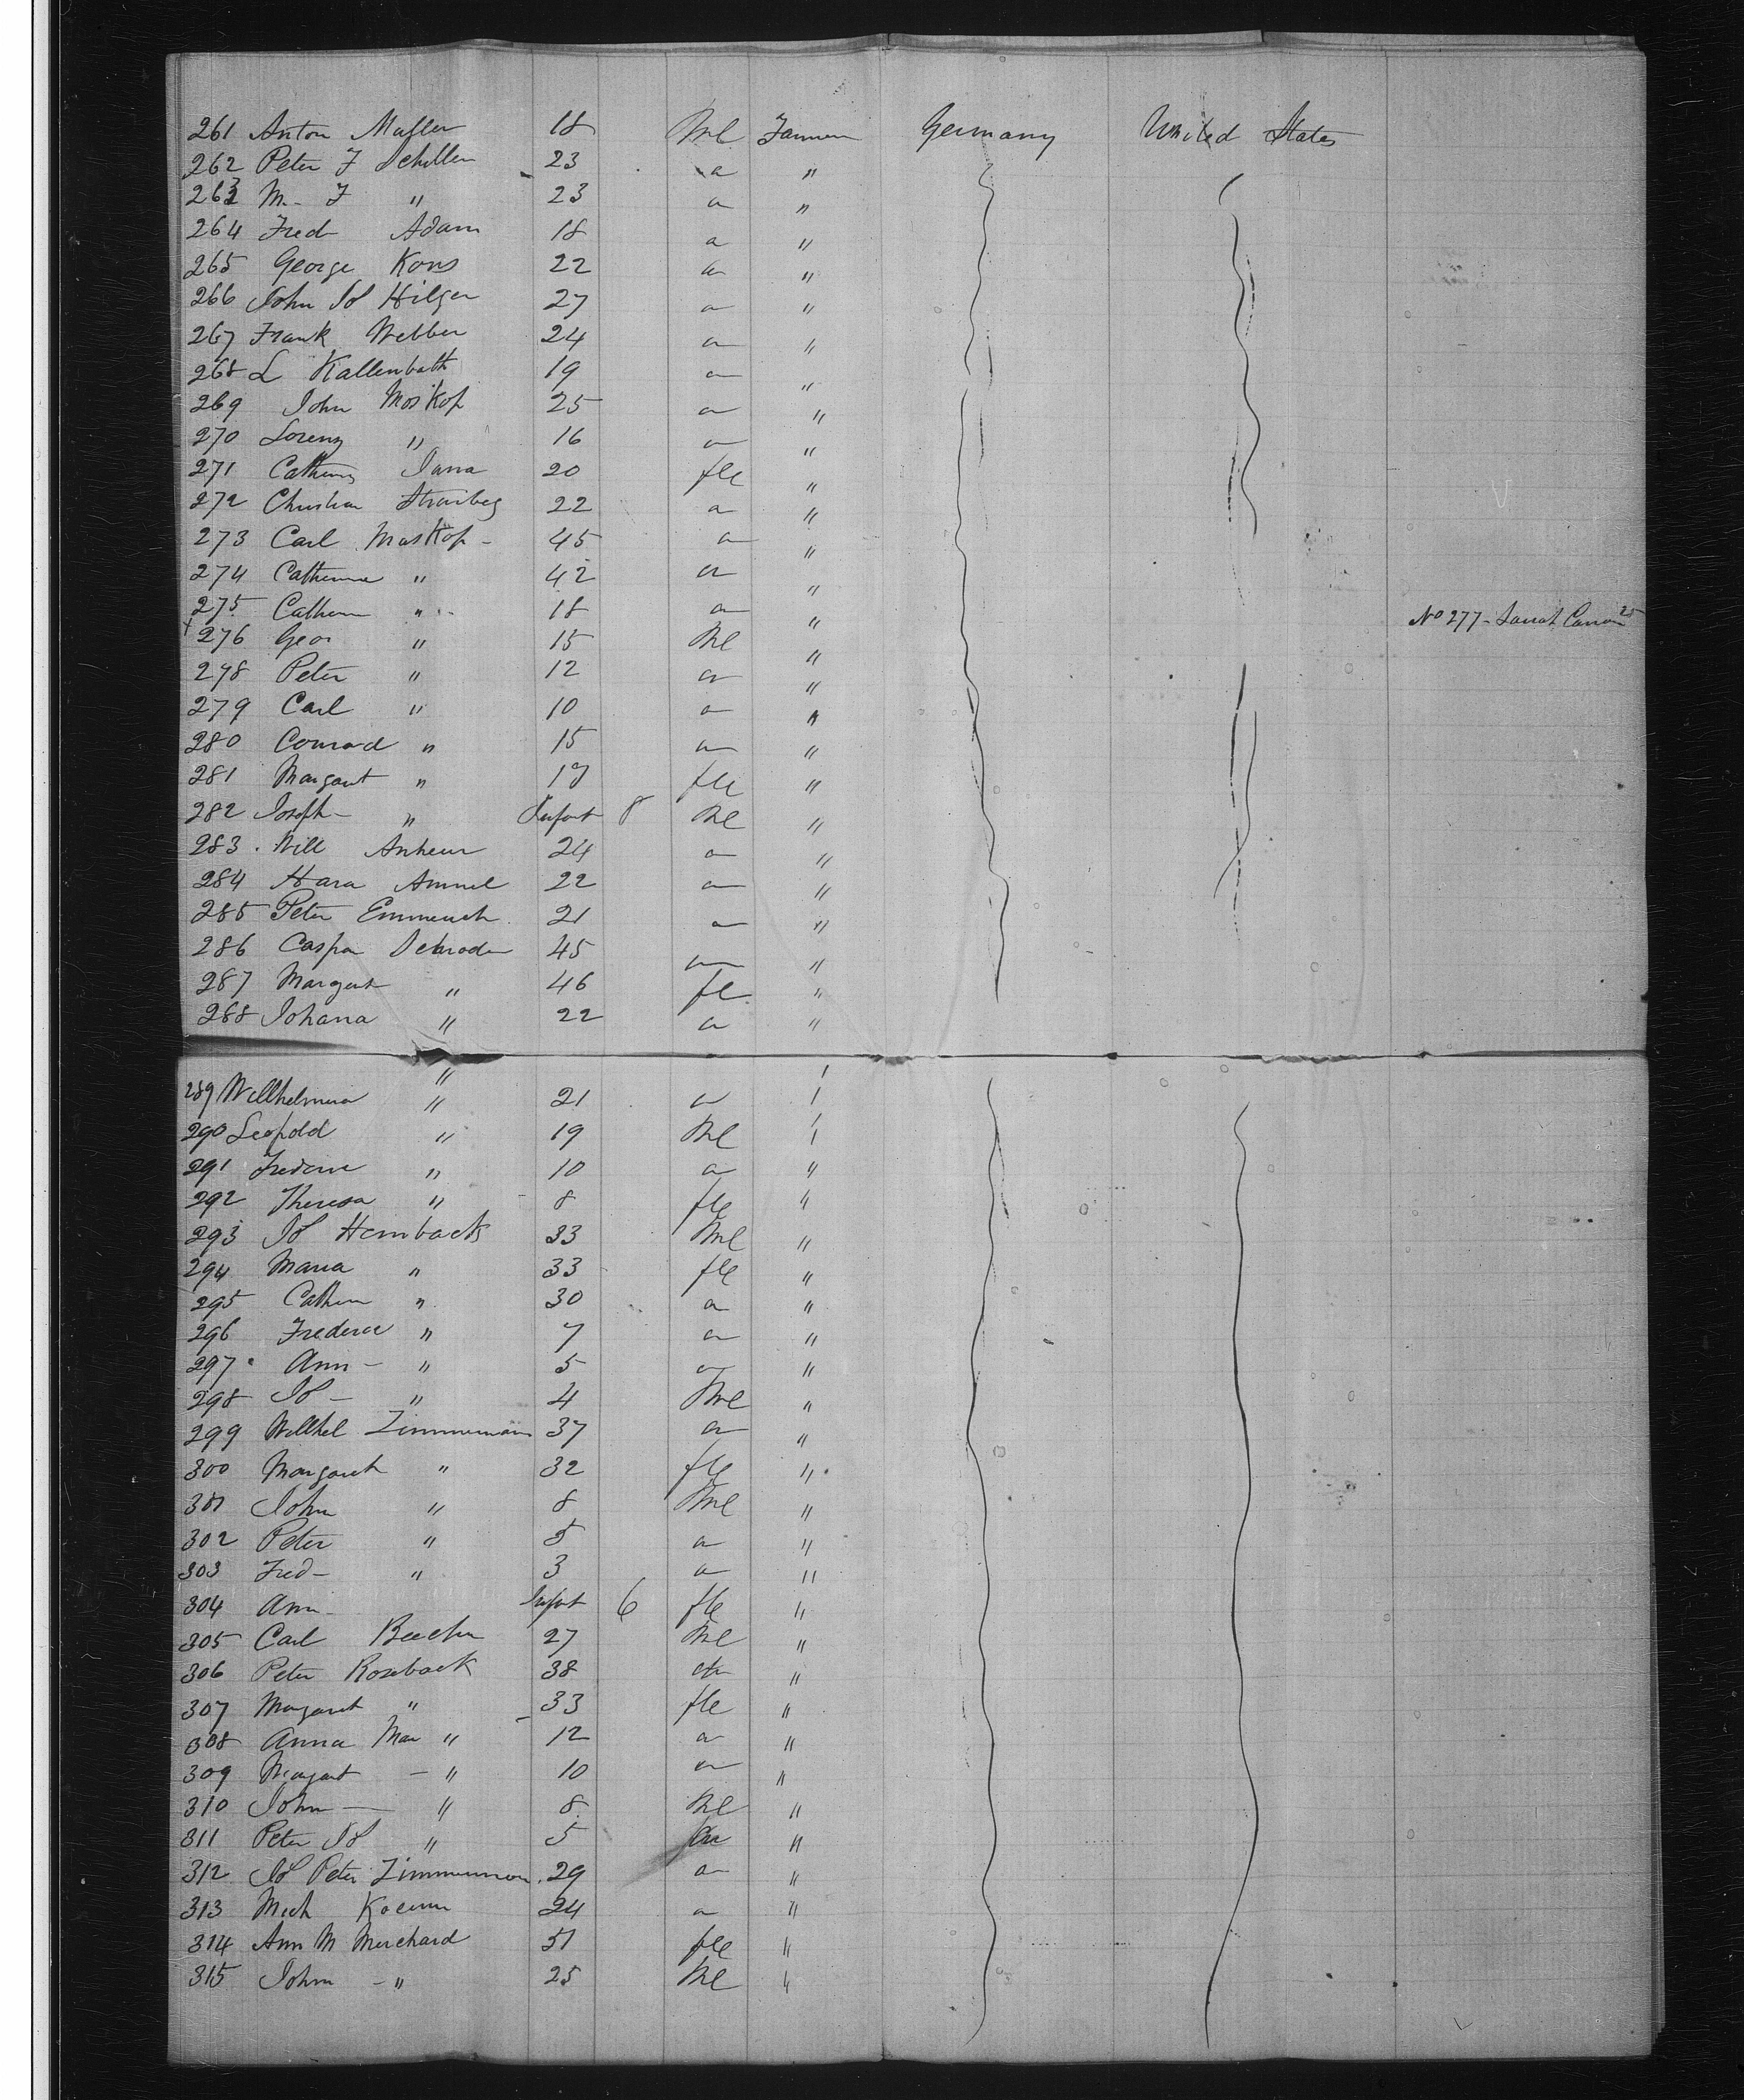 261 Anton Muller 18 Ml Farmer Germany United States
262 Peter F Schiller 23 " "
263 M - F " 23 " "
264 Fred Adam 18 " "
265 George Kons 22 " "
266 John Jos Hilger 27 " "
267 Frank Webber 24 " "
268 L Kallenbath 19 " "
269 John Moskop 25 " "
270 Lorenz " 16 " "
271 20 fle "
272 Christian 22 " "
273 Carl Maskop - 45 " "
274 Catherine " 42 " "
275 Cathern " 18 " "
No 277 - 25
276 Geor " 15 Ml "
278 Peter " 12 " "
279 Carl " 10 " "
280 Conrad " 15 " "
281 Margaret " 17 fle "
282 Joseph - " Infant 8 Ml "
283 Will 24 " "
284 22 " "
285 Peter Emmerich 21 " "
286 Caspar Schroder 45 " "
287 Margaret " 46 fle "
288 Johana " 22 " "
289 Willhelmina " 21 " "
290 Leopold " 19 Ml "
291 " 10 " "
292 Theresa " 8 fle "
293 Jos Hembach 33 Ml "
294 Maria " 33 fle "
295 Cathern " 30 " "
296 " 7 " "
297 Ann - " 5 " "
298 Jos - " 4 Ml "
299 Willhel Zimmermann 37 " "
300 Margaret " 32 fle "
301 John " 8 Ml "
302 Peter " 5 " "
303 Fred - " 3 " "
304 Ann - Infant 6 fle "
305 Carl Becker 27 Ml "
306 Peter Rosback 38 " "
307 Margaret " 33 fle "
308 Anna Mar " 12 " "
309 Margaret - " 10 " "
310 John - " 8 Ml "
311 Peter Jos " 5 " "
312 Jos Peter Zimmerman 29 " "
313 Mich 24 " "
314 Ann M Merchard 51 fle "
315 John - " 25 Ml "